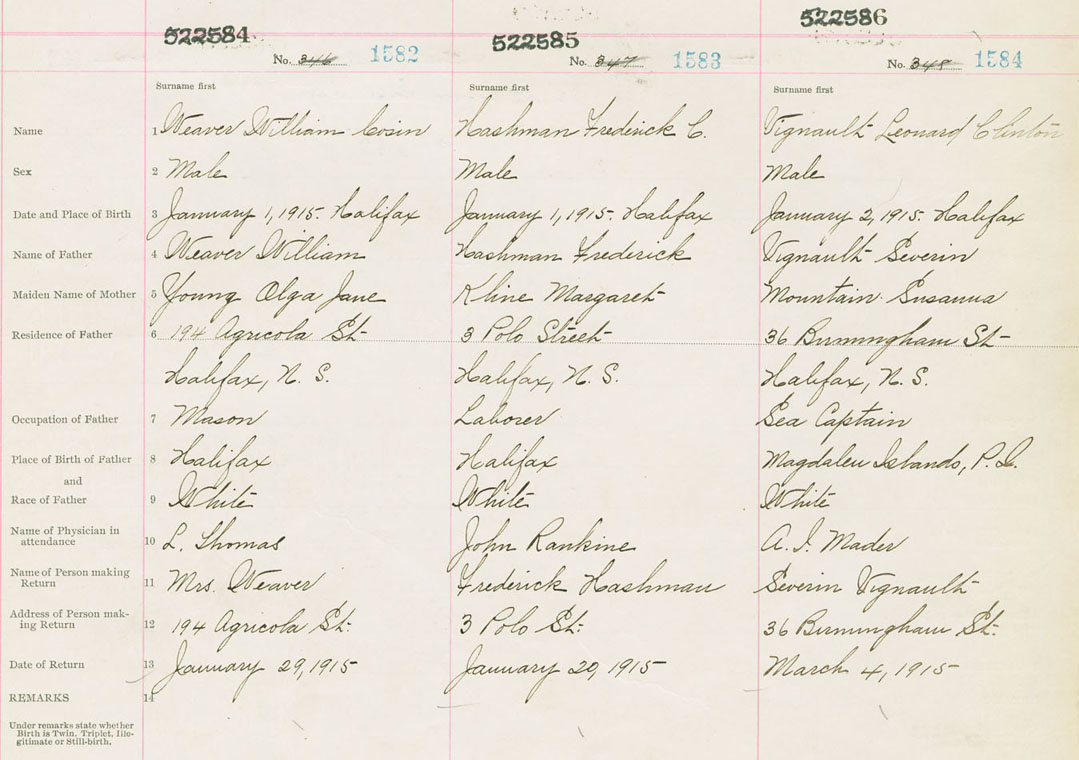 522584 522585 522586
No. 346 1582 No. 347 1583 No. 348 1584
Surname first Surname first Surname first
Name 1 Weaver William Cosin Hashman Frederick C. Vignault Leonard Clinton
Sex 2 Male Male Male
Date and Place of Birth 3 January 1, 1915. Halifax January 1, 1915. Halifax January 2, 1915. Halifax
Name of Father 4 Weaver William Hashman Frederick Vignault Severin
Maiden Name of Mother 5 Young Olga Jane Kline Margaret Mountain Susanna
Residence of Father 6 194 Agricola St 3 Polo Street 36 Birmingham St
Halifax, N. S. Halifax, N. S. Halifax, N. S.
Occupation of Father 7 Mason Laborer Sea Captain
Place of Birth of Father 8 Halifax Halifax Magdalen Islands, P. Q.
and
Race of Father 9 White White White
Name of Physician in
attendance 10 L. Thomas John Rankine A. I. Mader
Name of Person making
Return 11 Mrs. Weaver Frederick Hashman Severin Vignault
Address of Person mak-
ing Return 12 194 Agricola St. 3 Polo St. 36 Birmingham St.
Date of Return 13 January 29, 1915 January 20, 1915 March 4, 1915
REMARKS 14
Under remarks state whether
Birth is Twin, Triplet, Ille-
gitimate or Still-birth.